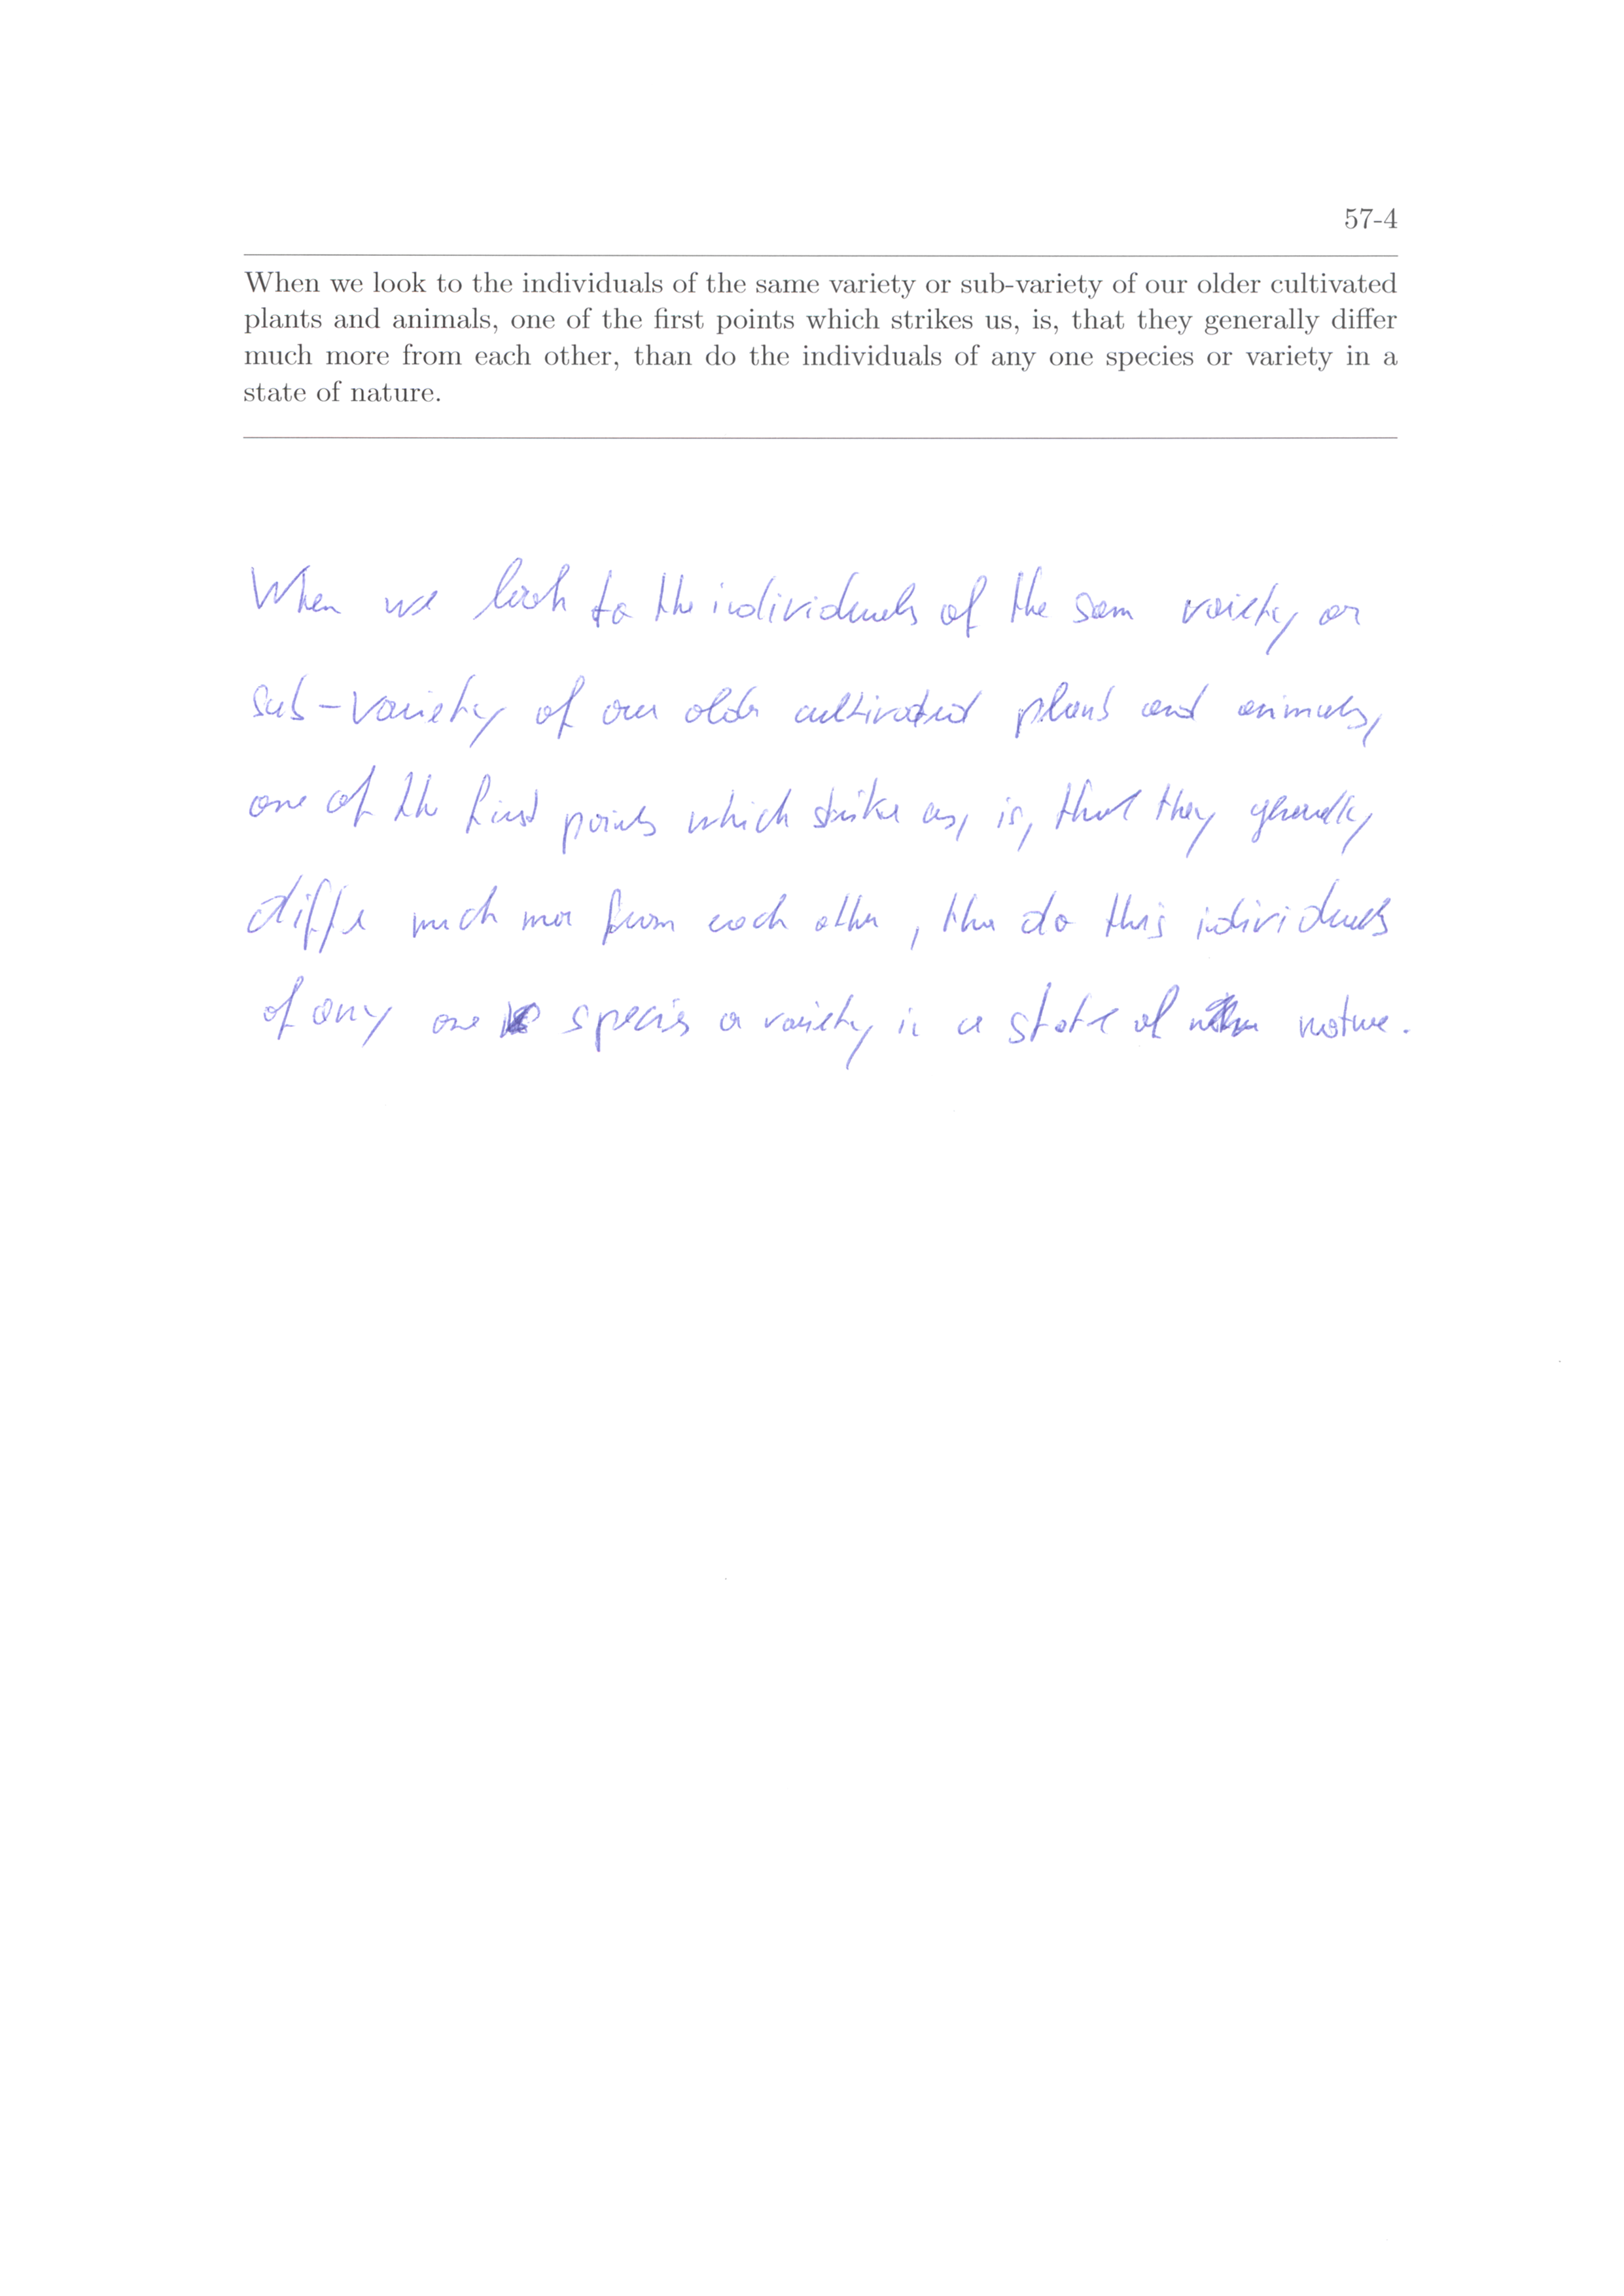 57-4
When we look to the individuals of the same variety or sub-variety of our older cultivated
plants and animals, one of the first points which strikes us, is, that they generally differ
much more from each other, than do the individuals of any one species or variety in a
state of nature.
When we look to the individuals of the same variety or
sub-variety of our older cultivated plants and animals,
one of the first points which strike us, is, that they generally
differ much more from each other, than do this individuals
of any one species or variety in a state of nature.